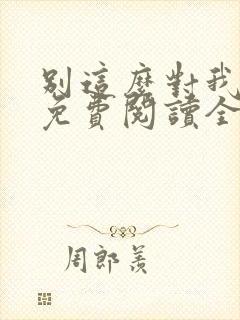 別這麼對我
免費閱讀全
周郎羨